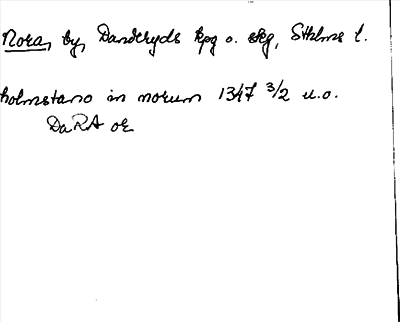 Nora, by, Danderyds kpg o. skg, Sthlms l.
holmstano in norum 1347 3/2 u.o.
DaRA or